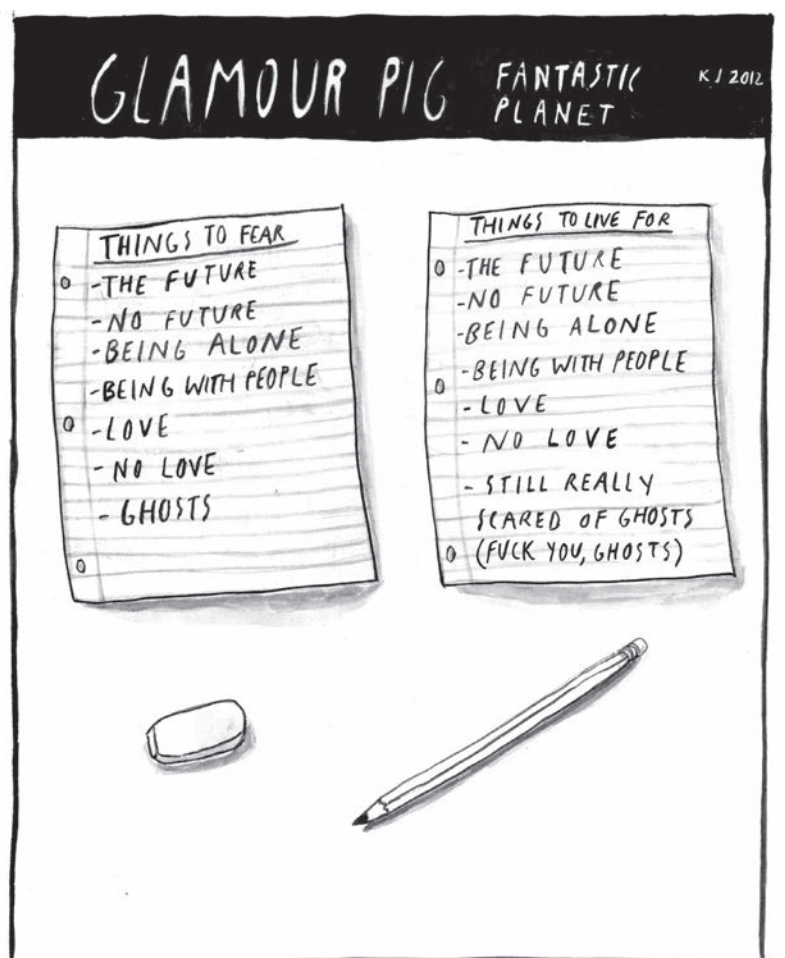 GLAMOUR PIG
FANTASTIC
PLANET
KJ 2012
THINGS TO FEAR
-THE FUTURE
-NO FUTURE
-BEING ALONE
-BEING WITH PEOPLE
-LOVE
- NO LOVE
- GHOSTS
THINGS TO LIVE FOR
-THE FUTURE
-NO FUTURE
-BEING ALONE
-BEING WITH PEOPLE
- LOVE
- NO LOVE
- STILL REALLY
SCARED OF GHOSTS
(FUCK YOU, GHOSTS)